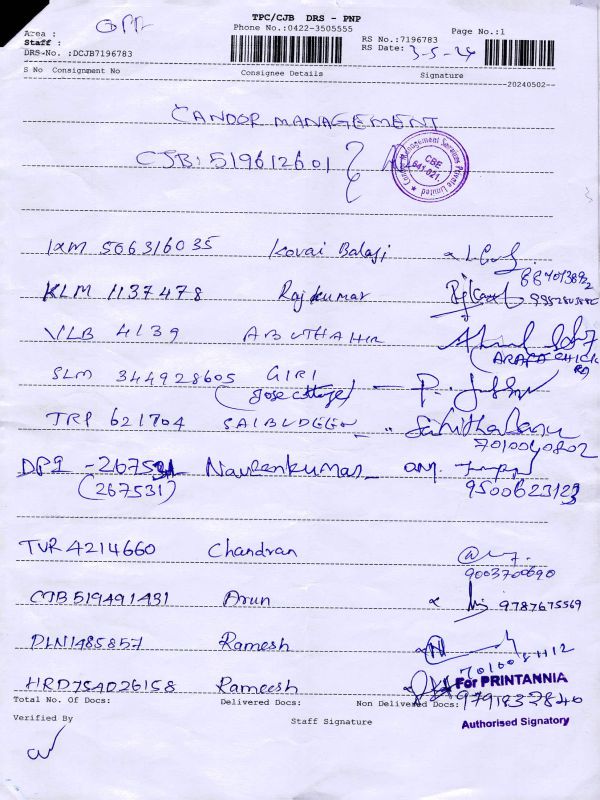 TPC/CJB DRS - PNP
Phone No.:0422-3505555
Page No.:1
Area :
Staff :
RS No.:7196783
DRS-No. :DCJB7196783
RS Date: 3-5-24
S No Consignment No Consignee Details Signature
20240502
CANDOR MANAGEMENT
CJB: 519612601
Management Services Private Limited
CBE
641-021.
IXM 506316035 Kovai Balaji
KLM 1137478 Rajkumar
VLB 4139 ABUTHAHIR
SLM 344928605 GIRI
TRP 621704 SAIBUDEEN
7010040802
DPI -267531 Naveenkumar
(267531) 9500623123
TVR 4214660 Chandran
9003700690
CJB 519491431 Arun 9787675569
PLN1485857 Ramesh
HRD754026158 Rameesh
For PRINTANNIA
9791832840
Total No. Of Docs: Delivered Docs: Non Delivered Docs:
Verified By Staff Signature Authorised Signatory